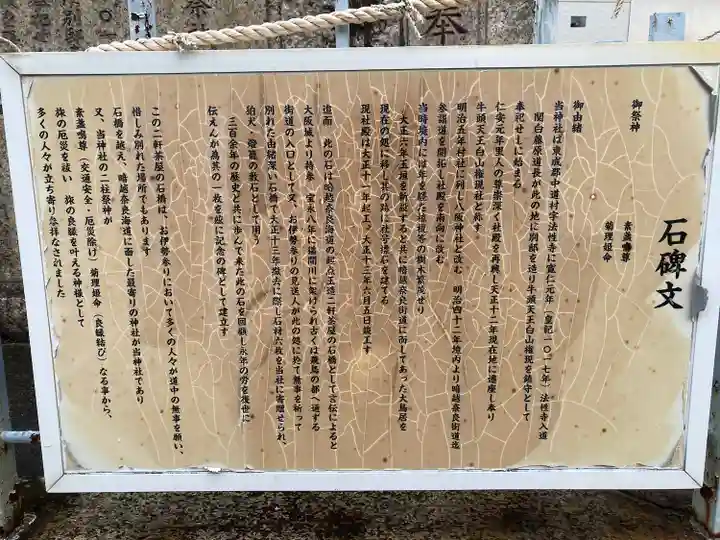 奉
石碑文
御祭神
素盞嗚尊
菊理姫命
御由緒
当神社は東成郡中道村字法性寺に寛仁元年(皇紀一〇一七年)法性寺入道
関白藤原道長が此の地に別邸を造り牛頭天王白山権現を鎮守として
奉祀せしに始まる
仁安元年里人の尊崇深く社殿を再興し天正十二年現在地に遷座し奉り
牛頭天王白山権現社と称す。
明治五年村社に列し八阪神社と改む 明治四十二年境内より暗越奈良街道迄
参詣道を開拓し社殿を南向に改む
当時境内には年を経た桧椴等の樹木繁茂せり
大正六年玉垣を新設すると共に暗越奈良街道に面してあった大鳥居を
現在の処に移し其の跡に社号標石を建てる
現社殿は大正十一年起工。大正十三年六月五日竣工す
追而 此の石は暗越奈良海道の起点玉造二軒茶屋の石橋として言伝によると
大阪城より持参 宝永八年に猫間川に架けられ古くは飛鳥の都へ通ずる
街道の入口として又、お伊勢参りの見送人が此の処に於て無事を祈って
別れた由緒深い石橋で大正十三年撤去に際し石材六枚を当社に寄贈せられ、
狛犬・燈篭の敷石として用う
三百余年の歴史と共に歩んで来た此の石を回顧し永年の労を後世に
伝えんが為其の一枚を玆に記念の碑として建立す
この二軒茶屋の石橋は、お伊勢参りにおいて多くの人々が道中の無事を願い、
惜しみ別れた場所でもあります
石橋を越え、暗越奈良海道に面した最寄りの神社が当神社であり
又、当神社の二柱祭神が
素盞嗚尊(交通安全・厄災除け) 菊理姫命(良縁結び)なる事から、
旅の厄災を祓い 旅の良縁を叶える神様として
多くの人々が立ち寄り参拝なされました